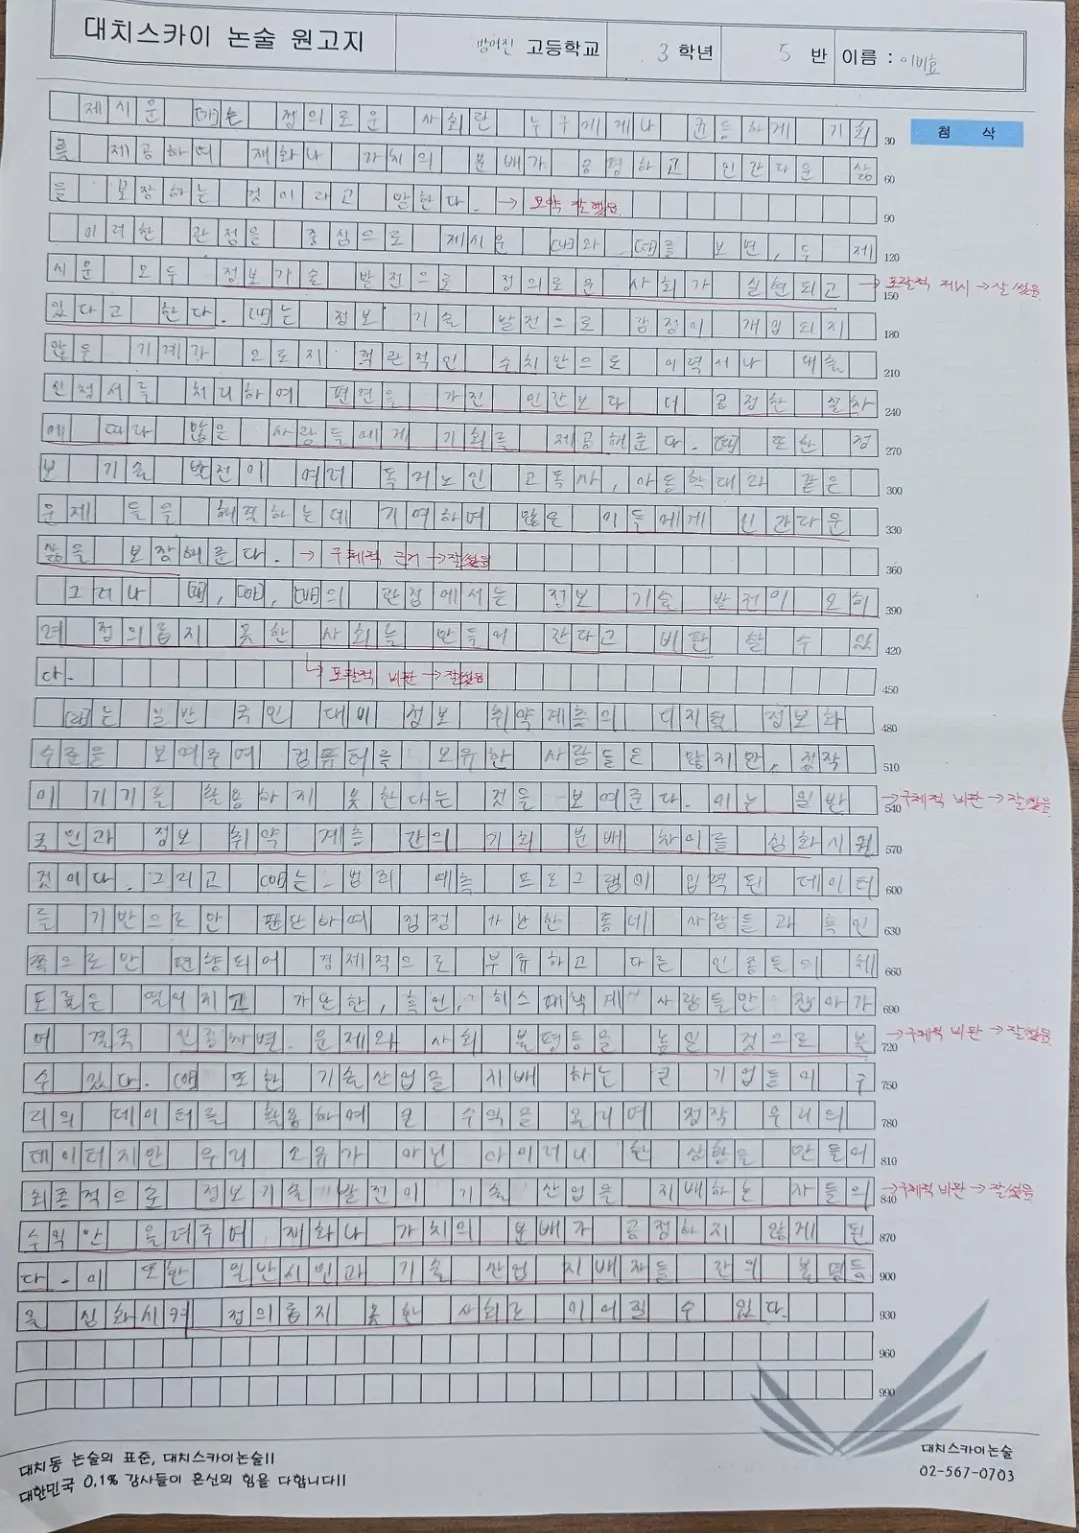 대치스카이 논술 원고지
방어진 고등학교 3 학년 5 반 이름 :
첨 삭
제시문 (가)는 정의로운 사회란 누구에게나 균등하게 기회 30
를 제공하여 재화나 가치의 분배가 공평하고 인간다운 삶 60
을 보장하는 것이라고 말한다. → 요약 잘했음 90
이러한 관점을 중심으로 제시문 (나)와 (다)를 보면, 두 제 120
시문 모두 정보기술 발전으로 정의로운 사회가 실현되고 150 → 포괄적 제시 → 잘 썼음
있다고 한다. (나)는 정보 기술 발전으로 감정이 개입되지 180
않은 기계가 오로지 객관적인 수치만으로 이력서나 대출 210
신청서를 처리하여 편견을 가진 인간보다 더 공정한 절차 240
에 따라 많은 사람들에게 기회를 제공해준다. (다) 또한 정 270
보 기술 발전이 여러 독거노인 고독사, 아동학대와 같은 300
문제 들을 해결하는데 기여하며 많은 이들에게 인간다운 330
삶을 보장해준다. → 구체적 근거 → 잘 썼음 360
그러나 (라), (마), (바)의 관점에서는 정보 기술 발전이 오히 390
려 정의롭지 못한 사회를 만들어 간다고 비판 할 수 있 420
다. → 포괄적 비판 → 잘 썼음 450
(라)는 일반 국민 대비 정보 취약계층의 디지털 정보화 480
수준을 보여주며 컴퓨터를 보유한 사람들은 많지만, 정작 510
이 기기를 활용하지 못한다는 것을 보여준다. 이는 일반 540 → 구체적 비판 → 잘 썼음
국민과 정보 취약 계층 간의 기회 분배 차이를 심화시킨 570
것이다. 그리고 (마)는 범죄 예측 프로그램이 입력된 데이터 600
를 기반으로만 판단하여 점점 가난한 동네 사람들과 흑인 630
쪽으로만 편향되어 경제적으로 부유하고 다른 인종들의 체 660
포율은 떨어지고 가난한, 흑인, 히스패닉계 사람들만 잡아가 690
며 결국 인종차별 문제와 사회 불평등을 높일 것으로 볼 720 → 구체적 비판 → 잘 썼음
수 있다. (바) 또한 기술산업을 지배 하는 큰 기업들이 우 750
리의 데이터를 활용하여 큰 수익을 올리며 정작 우리의 780
데이터지만 우리 소유가 아닌 아이러니 한 상황을 만들어 810
최종적으로 정보기술 발전이 기술 산업을 지배하는 자들의 840 → 구체적 비판 → 잘 썼음
수익만 올려주며 재화나 가치의 분배가 공정하지 않게 된 870
다. 이 또한 일반시민과 기술 산업 지배자들 간의 불평등 900
을 심화시켜 정의롭지 못한 사회로 이어질 수 있다. 930
960
990
대치동 논술의 표준, 대치스카이논술!!
대한민국 0.1% 강사들이 혼신의 힘을 다합니다!!
대치스카이논술
02-567-0703